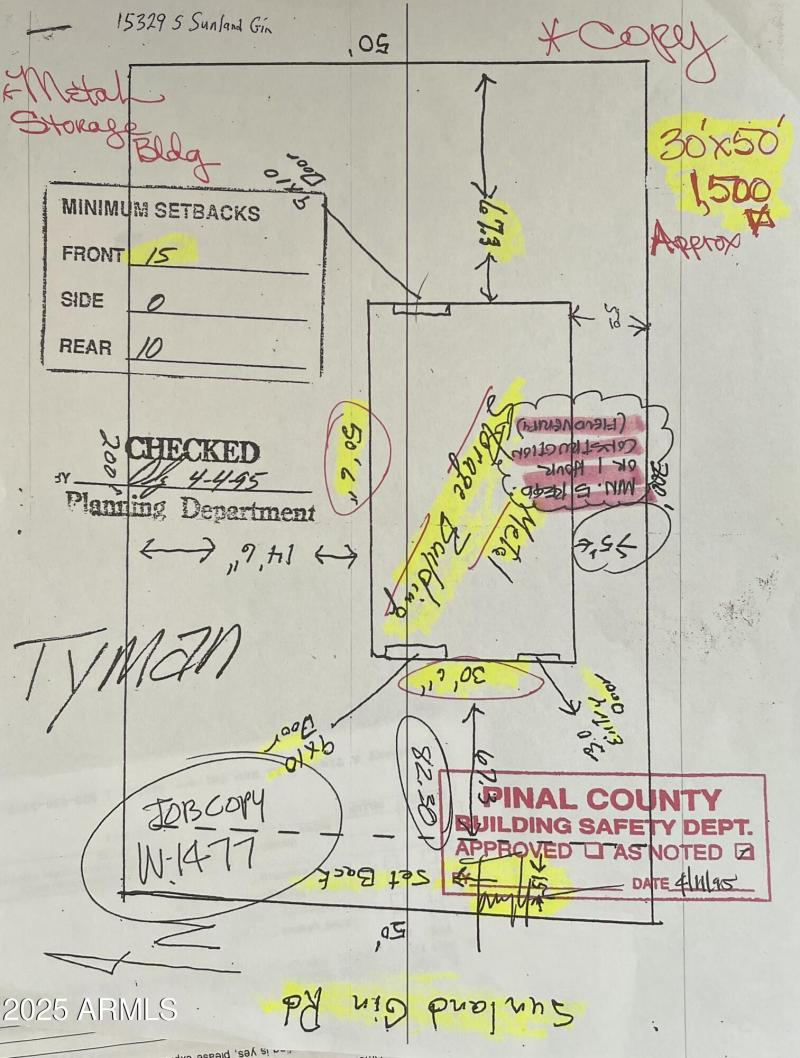 15329 S Sunland Gin
50'
* Copy
* Metal
Storage
Bldg
30'x50'
1,500
Approx
9x10
Door
MINIMUM SETBACKS
FRONT 15
SIDE 0
REAR 10
67.3
50'6"
Metal
Storage Building
MIN. 5 REQD
OR 1 HOUR
CONSTRUCTION
(FIELD VERIFY)
200'
200'
CHECKED
BY 4-4-95
Planning Department
14'6"
Tyman
30'6"
9x10
Door
Entry
Door
82.30
67.3
JOB COPY
W-1477
PINAL COUNTY
BUILDING SAFETY DEPT.
APPROVED ☐ AS NOTED ☑
DATE 4/11/95
Set Back
15'
50'
N
Sunland Gin Rd
2025 ARMLS